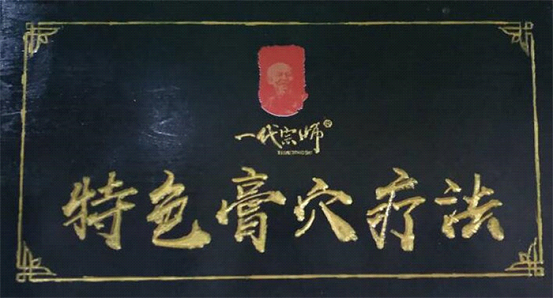 一代宗师
特色膏穴疗法